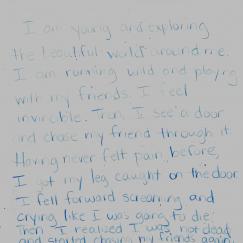 I am young and exploring
the beautiful world around me.
I am running wild and playing
with my friends. I feel
invincible. Then, I see a door
and chase my friend through it.
Having never felt pain before,
I got my leg caught on the door
I fell forward screaming and
crying like I was going to die.
Then I realized I was not dead
and started chasing my friends again